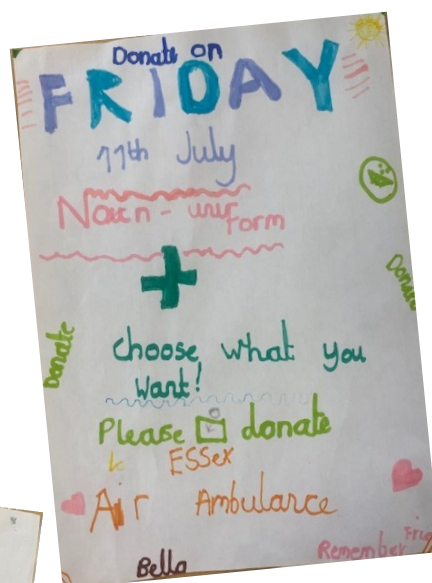 Donate on
FRIDAY
11th July
Noun - uniform
Donate
Donate
Choose what you
want!
Please donate
Essex
Air Ambulance
Bella
Remember